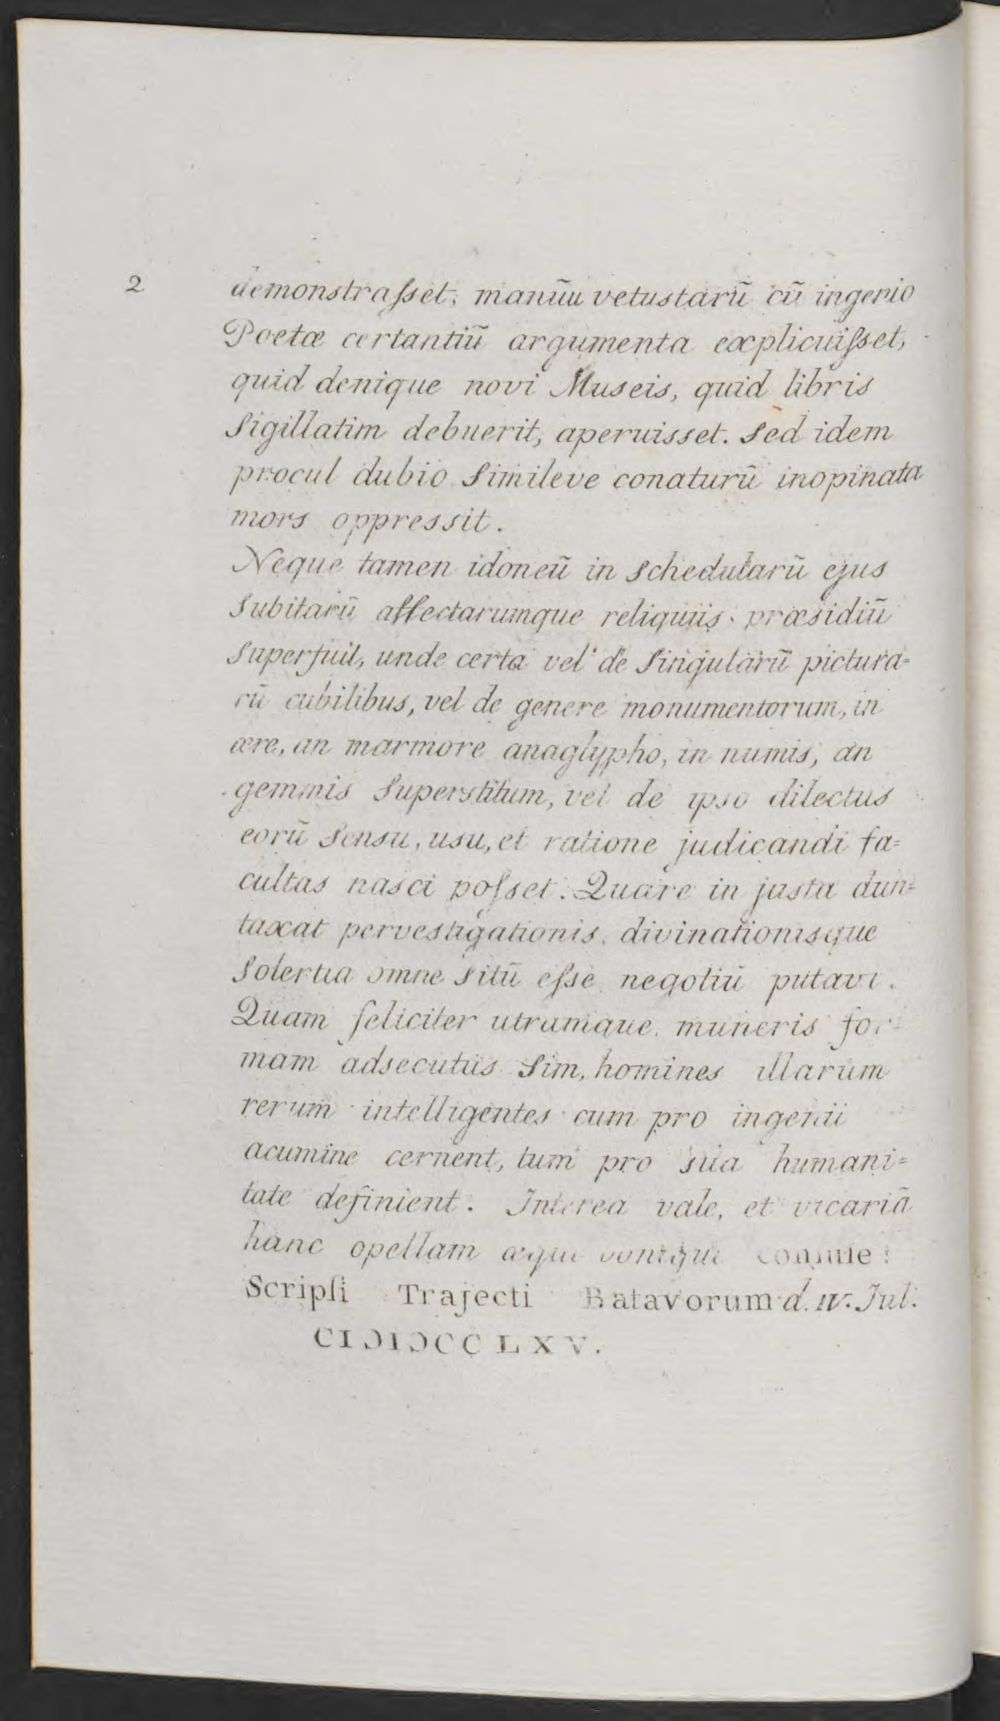 2
demonstraſset; manūu vetustarū cū ingenio
Poetæ certantiū argumenta explicuiſset,
quid denique novi Museis, quid libris
Sigillatim debuerit, aperuisset. Sed idem
procul dubio Simileve conaturū inopinata
mors oppressit.
Neque tamen idoneū in Schedularū ejus
Subitarū affectarumque reliquiis præsidiū
Superfuit, unde certa vel de Singularū pictura=
rū cubilibus, vel de genere monumentorum, in
ære, an marmore anaglypho, in numis, an
gemmis Superstitum, vel de ipso dilectus
eorū Sensu, usu, et ratione judicandi fa=
cultas nasci poſset. Quare in justa dun=
taxat pervestigationis, divinationisque
Solertia omne Sitū eſse negotiū putavi.
Quam feliciter utramque muneris for=
mam adsecutus Sim, homines illarum
rerum intelligentes cum pro ingenii
acumine cernent, tum pro sua humani=
tate definient. Interea vale, et vicariā
hanc opellam æqui bonique consule!
Scripſi Trajecti Batavorum d. IV. Jul.
CIƆIƆCCLXV.